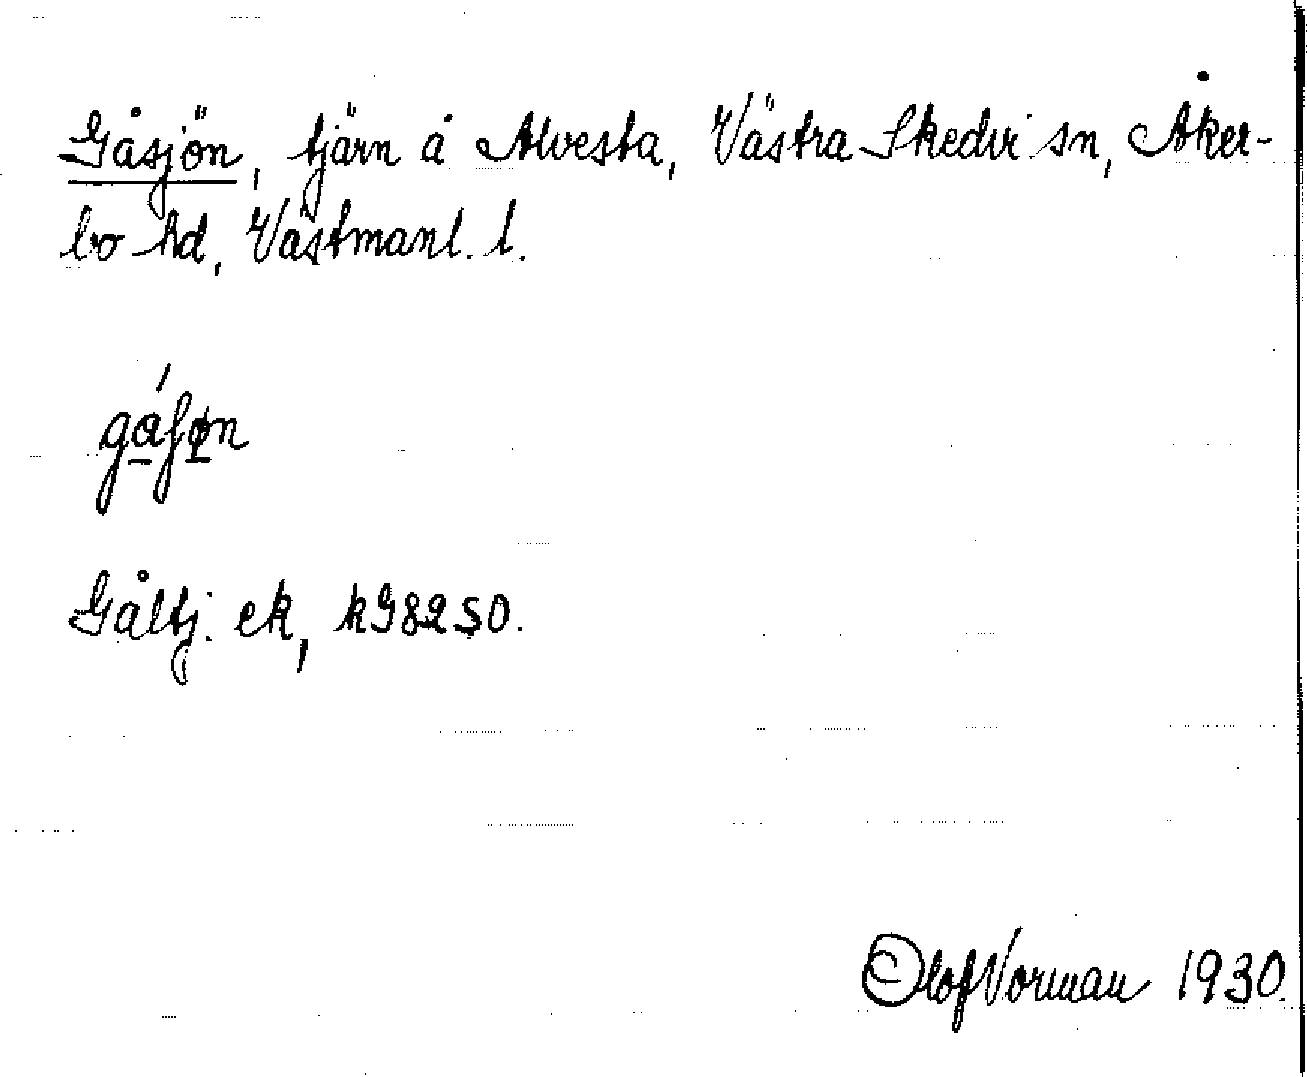 Gåsjön, tjärn å Alvesta, Västra Skedvi sn, Åker-
bo hd, Västmanl. l.
gáʃøn
Gåltj. ek, k98250.
Olof Vorman 1930.